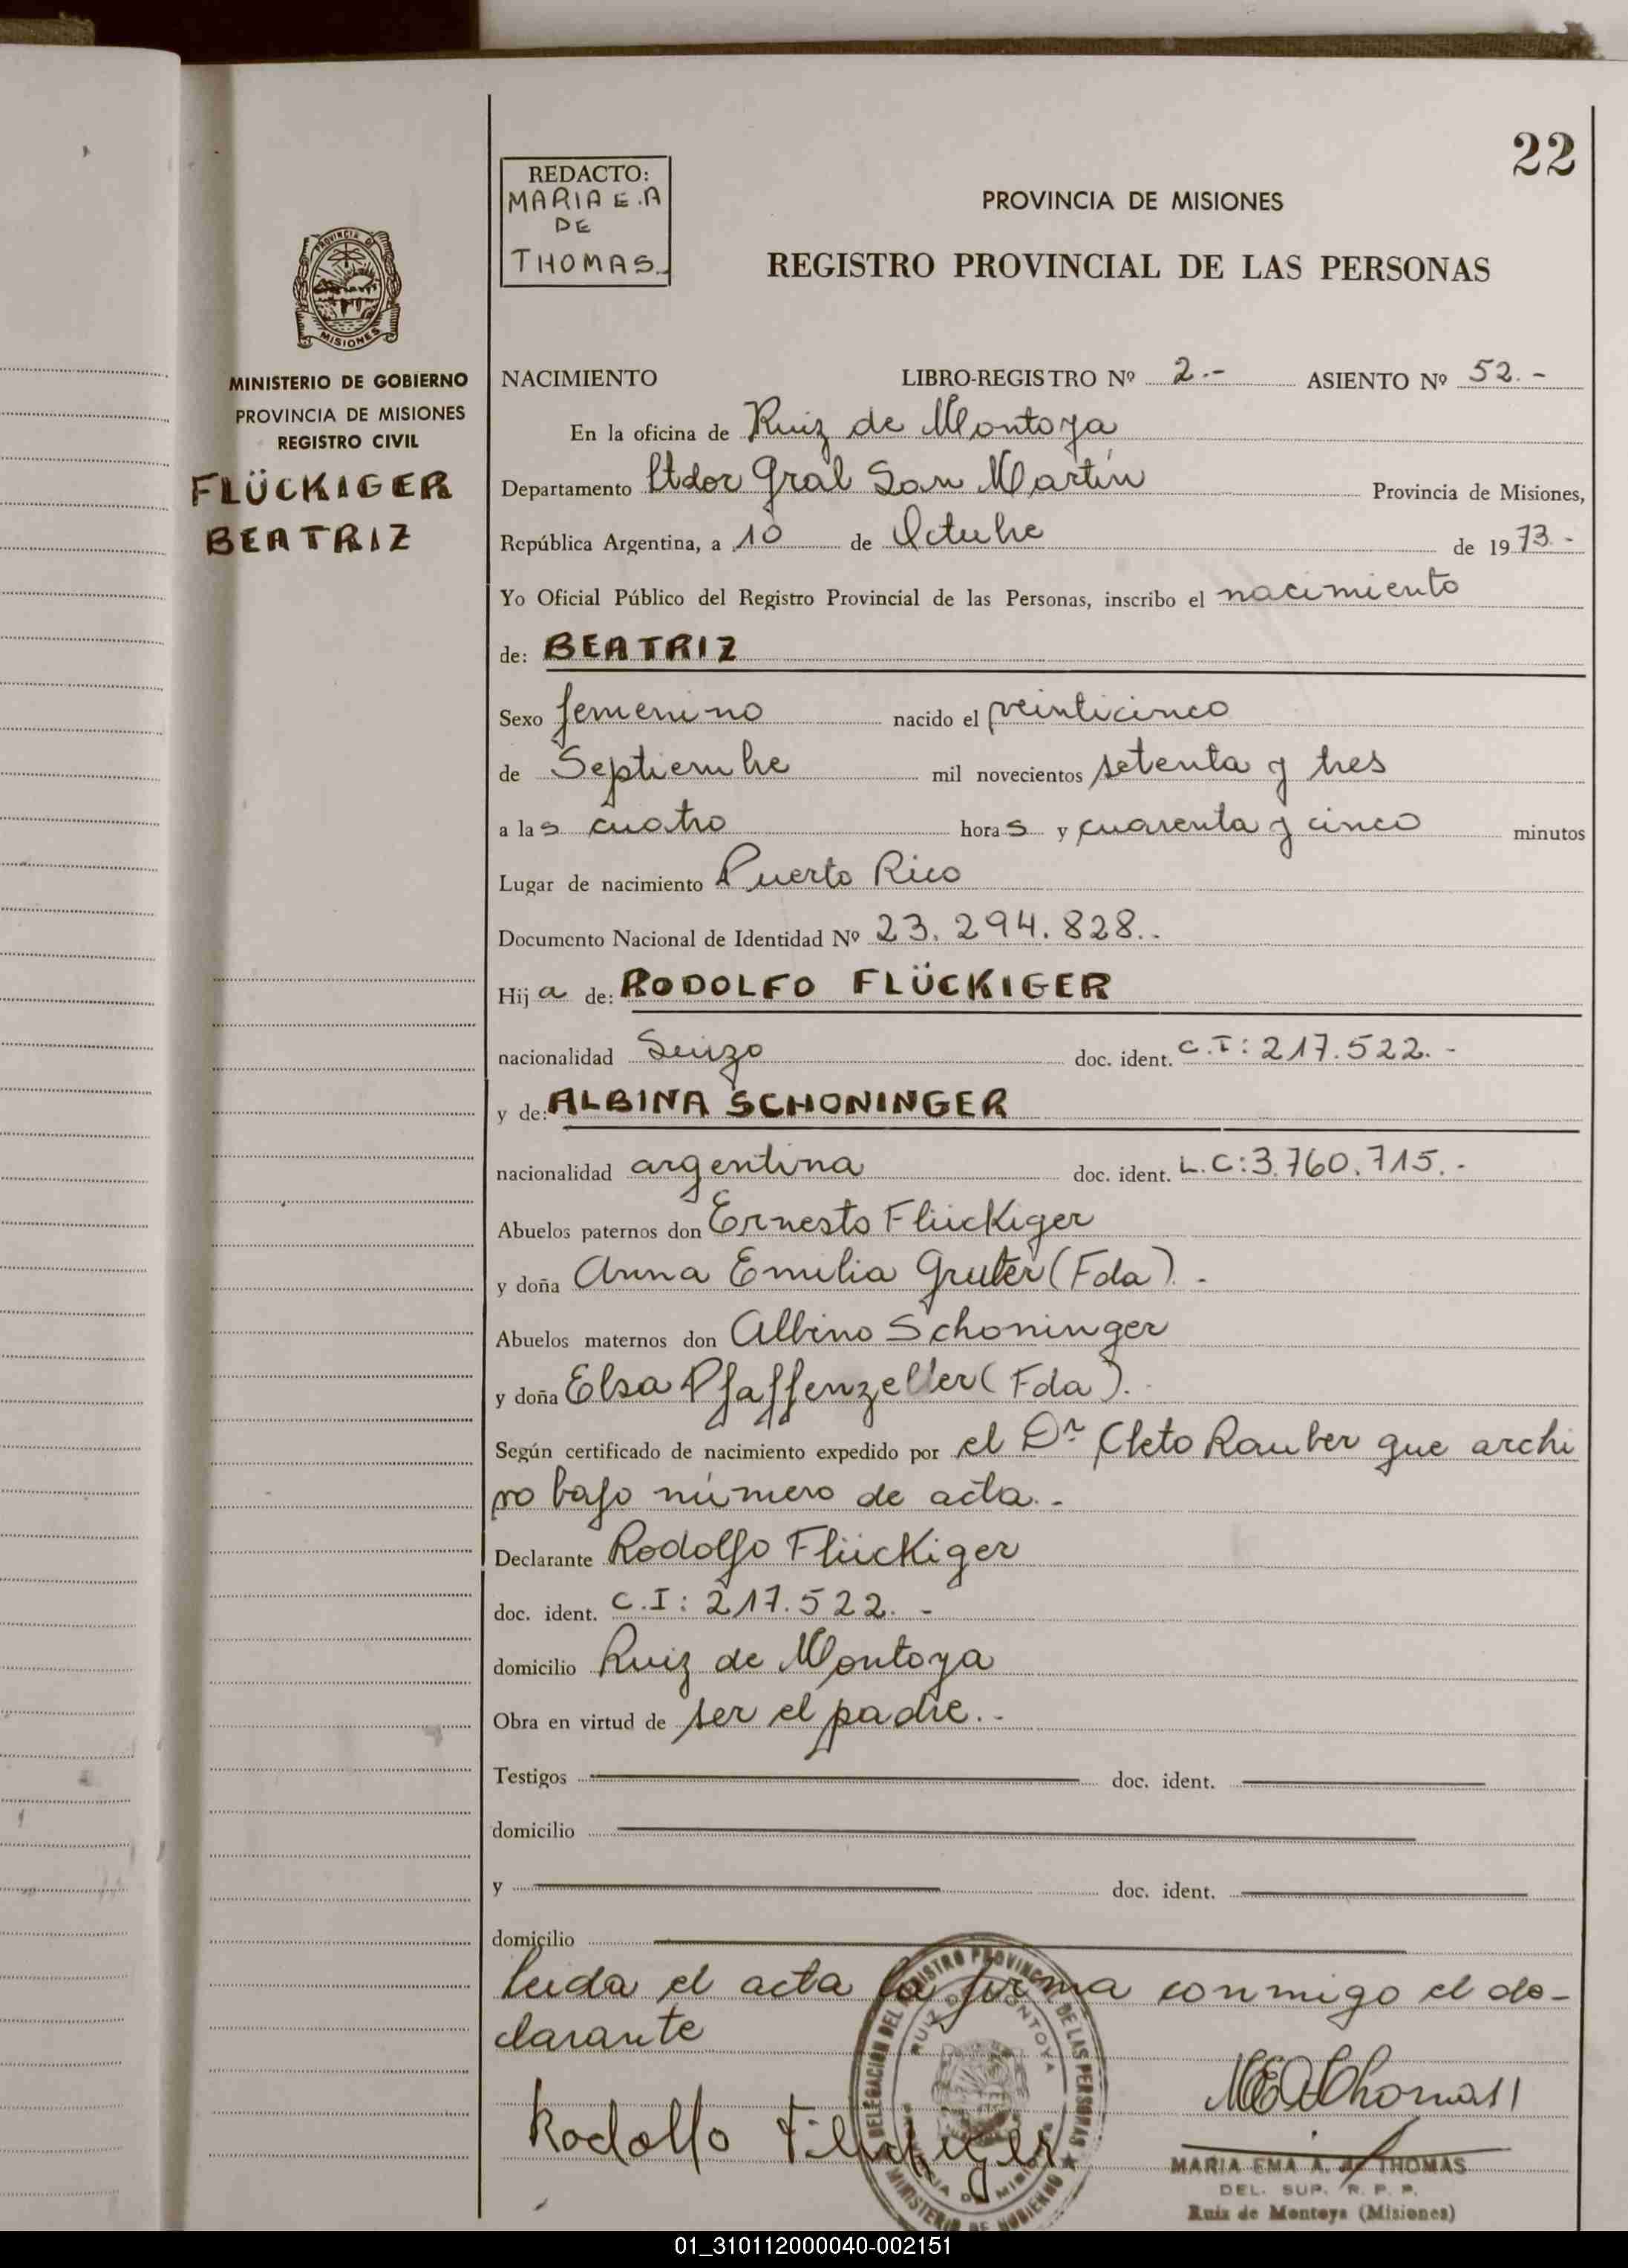 22
REDACTO:
MARIA E.A
DE
THOMAS
PROVINCIA DE MISIONES
REGISTRO PROVINCIAL DE LAS PERSONAS
PROVINCIA DE
MISIONES
MINISTERIO DE GOBIERNO
PROVINCIA DE MISIONES
REGISTRO CIVIL
FLÜCKIGER
BEATRIZ
NACIMIENTO LIBRO-REGISTRO Nº 2.- ASIENTO Nº 52.-
En la oficina de Ruiz de Montoya
Departamento Ltdor Gral San Martín Provincia de Misiones,
República Argentina, a 10 de Octubre de 1973.-
Yo Oficial Público del Registro Provincial de las Personas, inscribo el nacimiento
de: BEATRIZ
Sexo femenino nacido el veinticinco
de Septiembre mil novecientos setenta y tres
a las cuatro horas y cuarenta y cinco minutos
Lugar de nacimiento Puerto Rico
Documento Nacional de Identidad Nº 23.294.828..
Hija de: RODOLFO FLÜCKIGER
nacionalidad Suizo doc. ident. C.I: 217.522.-
y de: ALBINA SCHONINGER
nacionalidad argentina doc. ident. L.C:3.760.715.-
Abuelos paternos don Ernesto Flückiger
y doña Anna Emilia Gruter (Fda).-
Abuelos maternos don Albino Schoninger
y doña Elsa Pfaffenzeller (Fda).
Según certificado de nacimiento expedido por el Dr Cleto Rauber que archi
vo bajo número de acta.-
Declarante Rodolfo Flückiger
doc. ident. C.I: 217.522.-
domicilio Ruiz de Montoya
Obra en virtud de ser el padre.-
Testigos doc. ident.
domicilio
y doc. ident.
domicilio
Leida el acta la firma conmigo el de-
clarante
DELEGACION DEL REGISTRO PROVINCIAL DE LAS PERSONAS
RUIZ DE MONTOYA
MINISTERIO DE GOBIERNO
Rodolfo Flückiger
MEAThomas
MARIA EMA A. de THOMAS
DEL. SUP. R. P. P.
Ruiz de Montoya (Misiones)
01_310112000040-002151